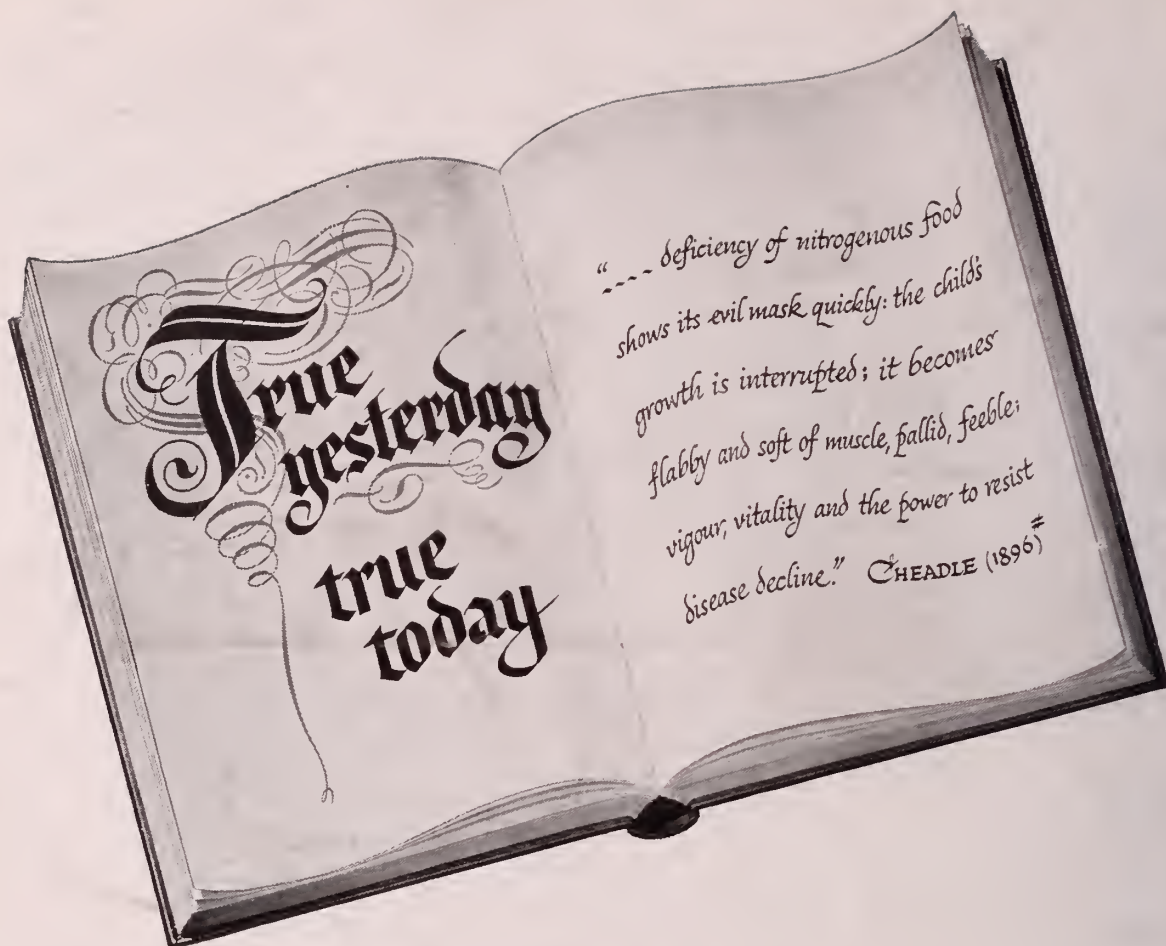 True
yesterday
true
today
“---- deficiency of nitrogenous food
shows its evil mask quickly: the child's
growth is interrupted; it becomes
flabby and soft of muscle, pallid, feeble;
vigour, vitality and the power to resist
disease decline.” CHEADLE (1896)#